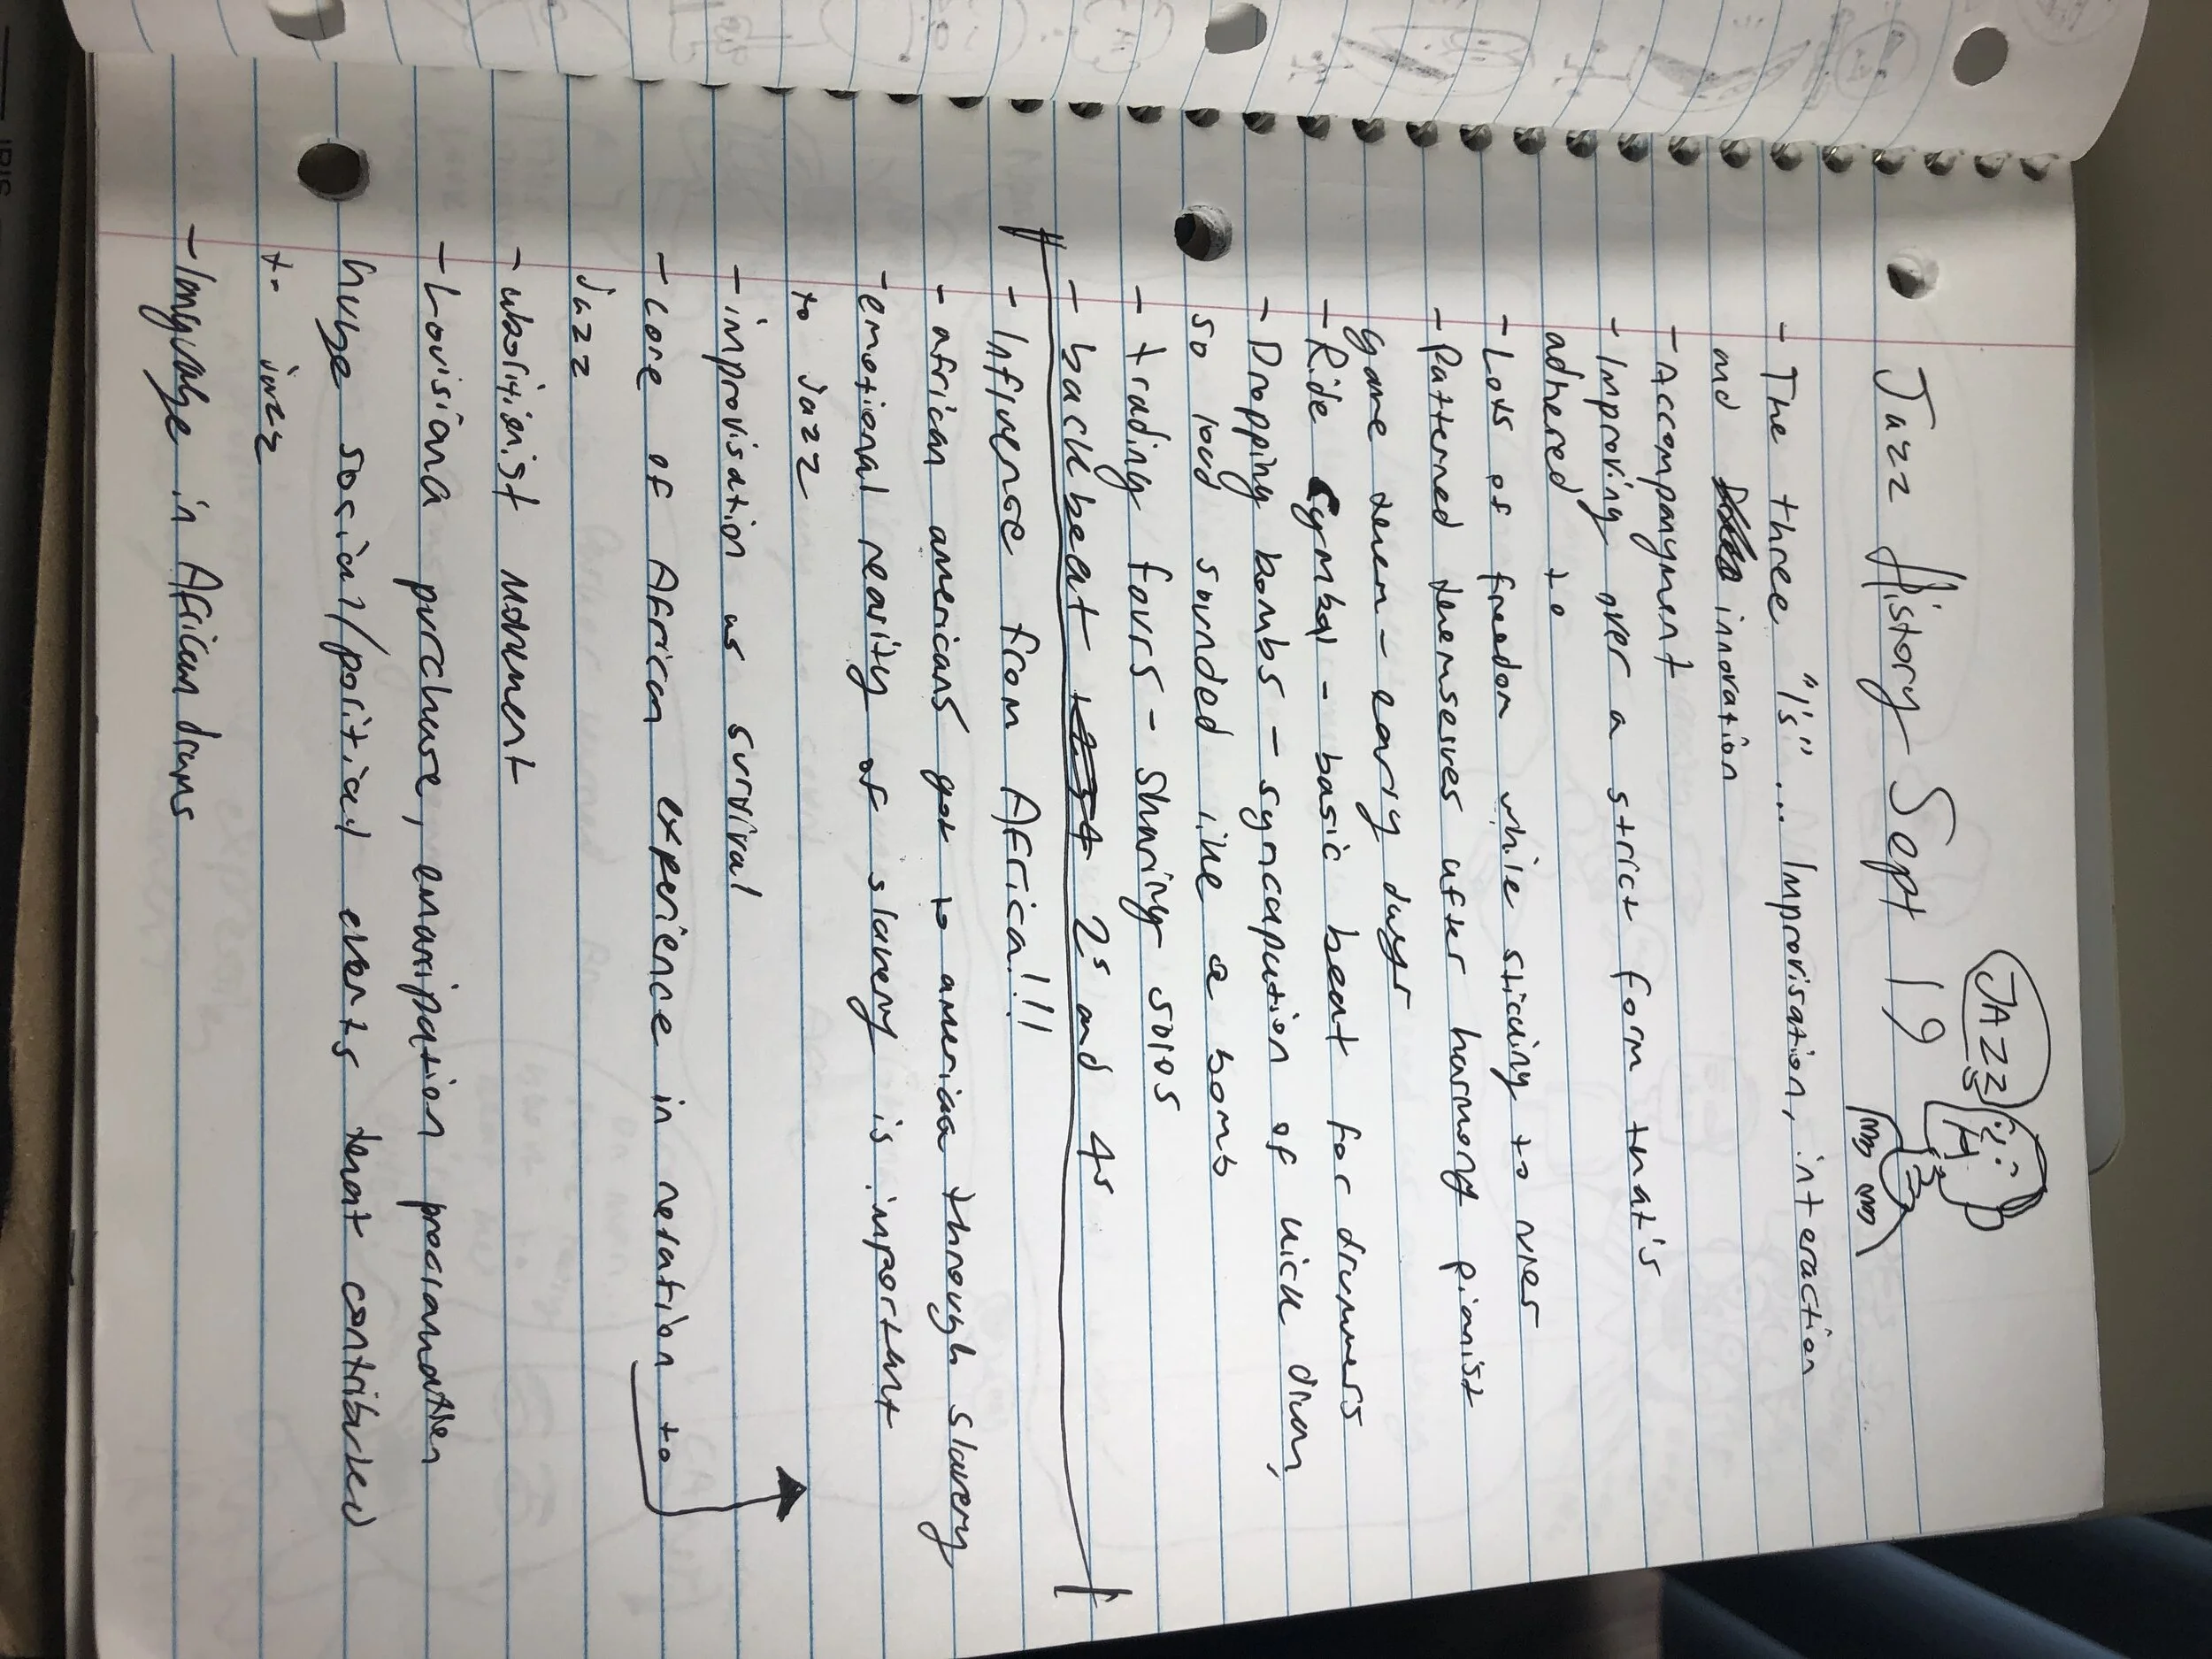 JAZZ
Jazz History Sept 19
- The three "I's" ... Improvisation, interaction
and innovation
- Accompanyment
- Improving over a strict form that's
adhered to
- Lots of freedom while sticking to over
- Patterned themselves after harmony pianist
game them - early days
- Ride Cymbal - basic beat for drummers
- Dropping bombs - syncapution of kick drum,
so loud sounded like a bomb
- trading fours - Sharing solos
- backbeat 2s and 4s
- Influence from Africa!!!
- african americans got to america through slavery
- emotional reality of slavery is important
to Jazz
- improvisation as survival
- core of African experience in relation to
Jazz
- abolitionist movment
- Louisiana purchase, emancipation proclamation
huge social/political events that contributed
to jazz
- language in African drums